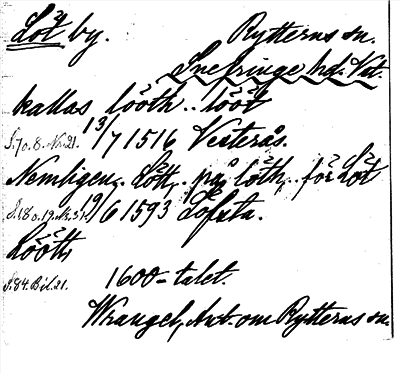 Löt by. Rytterns sn.
Snefringe hd. Vstm.
kallas lööth.. lööt
S. 7 o. 8. Nr. 21. 13/7 1516 Vesterås.
Nemligen.. Lött,. på löth,. för Löt
S. 18 o. 19. Nr. 31. 19/6 1593 Löfsta.
Lööth
S. 84. Bil. 21. 1600-talet.
Wrangel, Ant. om Rytterns sn.